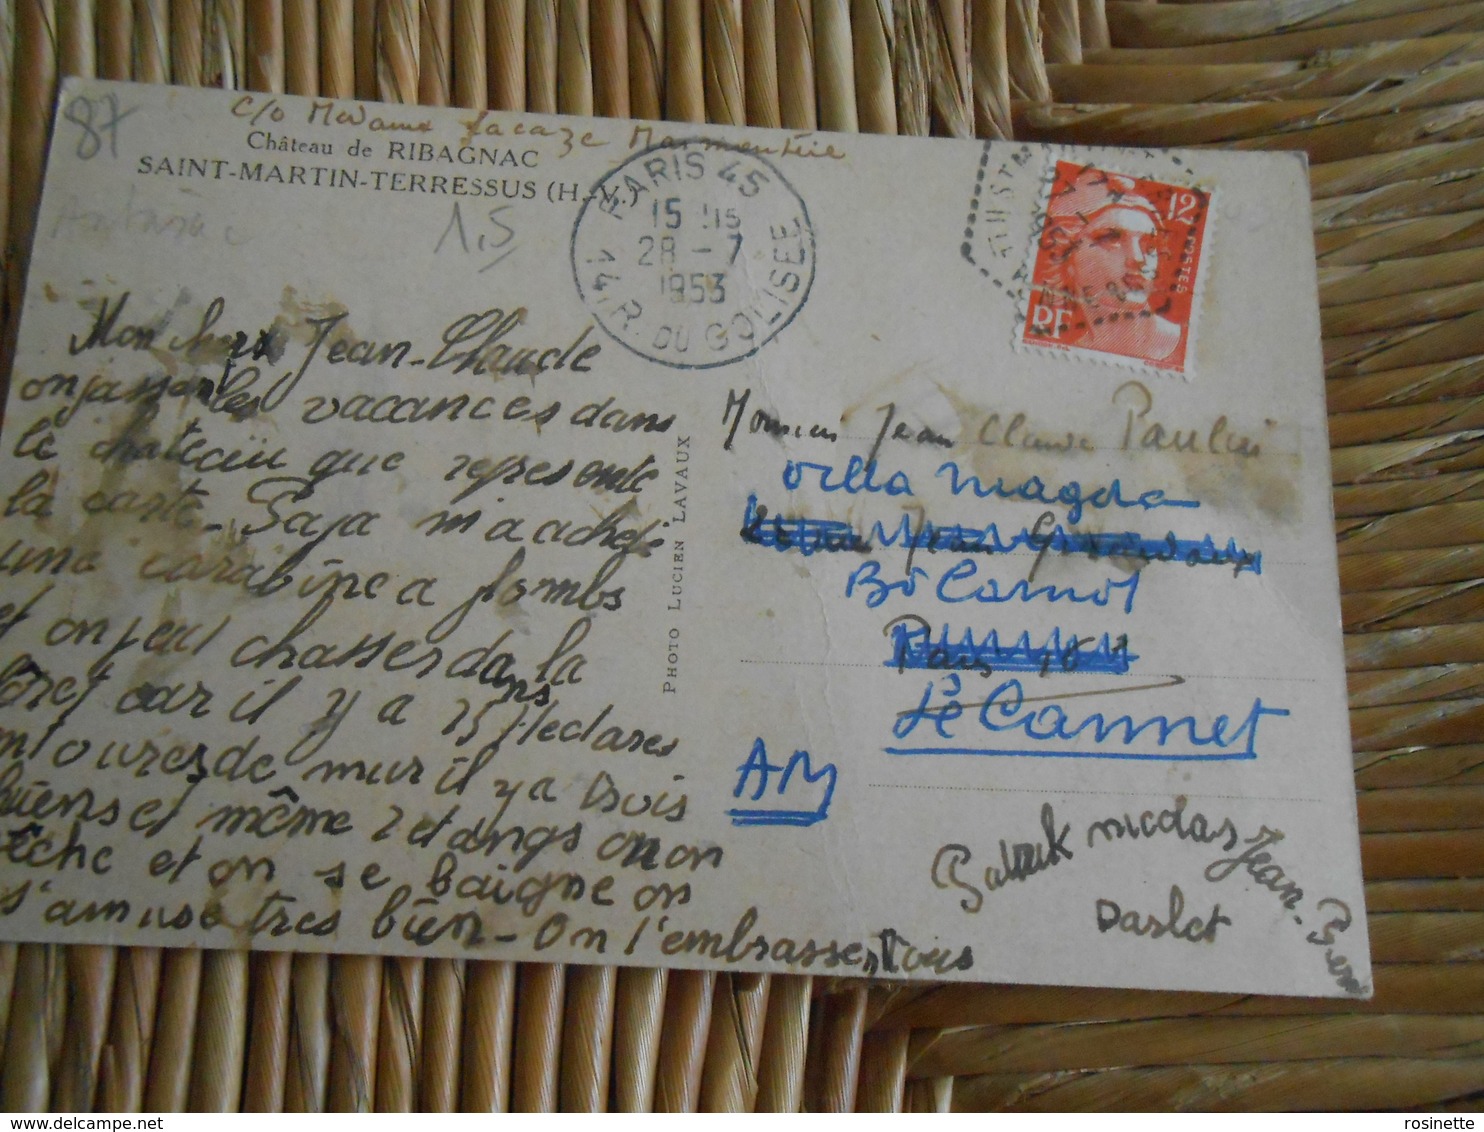 87
c/o Madame Lacaze
Château de RIBAGNAC
SAINT-MARTIN-TERRESSUS (H.-V.)
1,5
PARIS 45
15 H 15
28 - 7
1953
R. DU COLISEE
12
POSTES
RF
Mon cher Jean-Claude
on passe les vacances dans
le chateau que represente
la carte. Papa m'a acheté
une carabine a plombs
et on peut chasser dans la
foret car il y a 75 Hectares
entoures de mur il y a trois
chiens et même 2 etangs on on
pêche et on se baigne on
s'amuse tres bien - On t'embrasse tous
PHOTO LUCIEN LAVAUX
Monsieur Jean Claude Paulini
Villa Magda
Bd Carnot
Paris
Le Cannet
AM
Patrick Nicolas Jean-Pierre
Darlet
rosinette